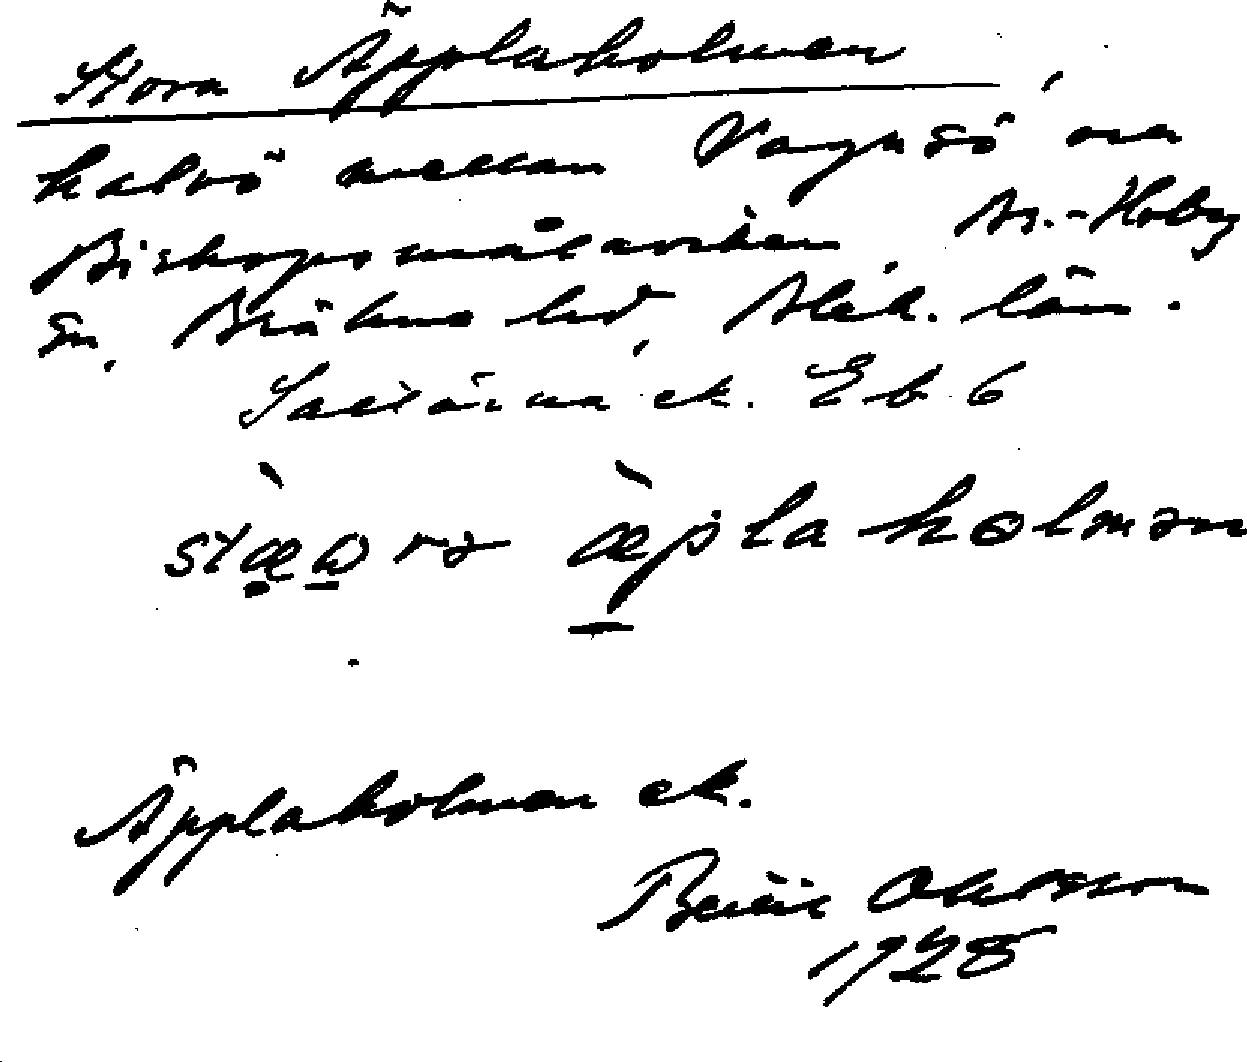 Stora Äpplaholmen,
halvö mellan Vagnsö och
Biskopsmålaviken, Br.-Hoby
sn, Bräkne hd, Blek. län.
Saltärna ek. Eb 6
stæωrə æplaholmən
Äpplaholmen ek.
Bertil Ohlsson
1928